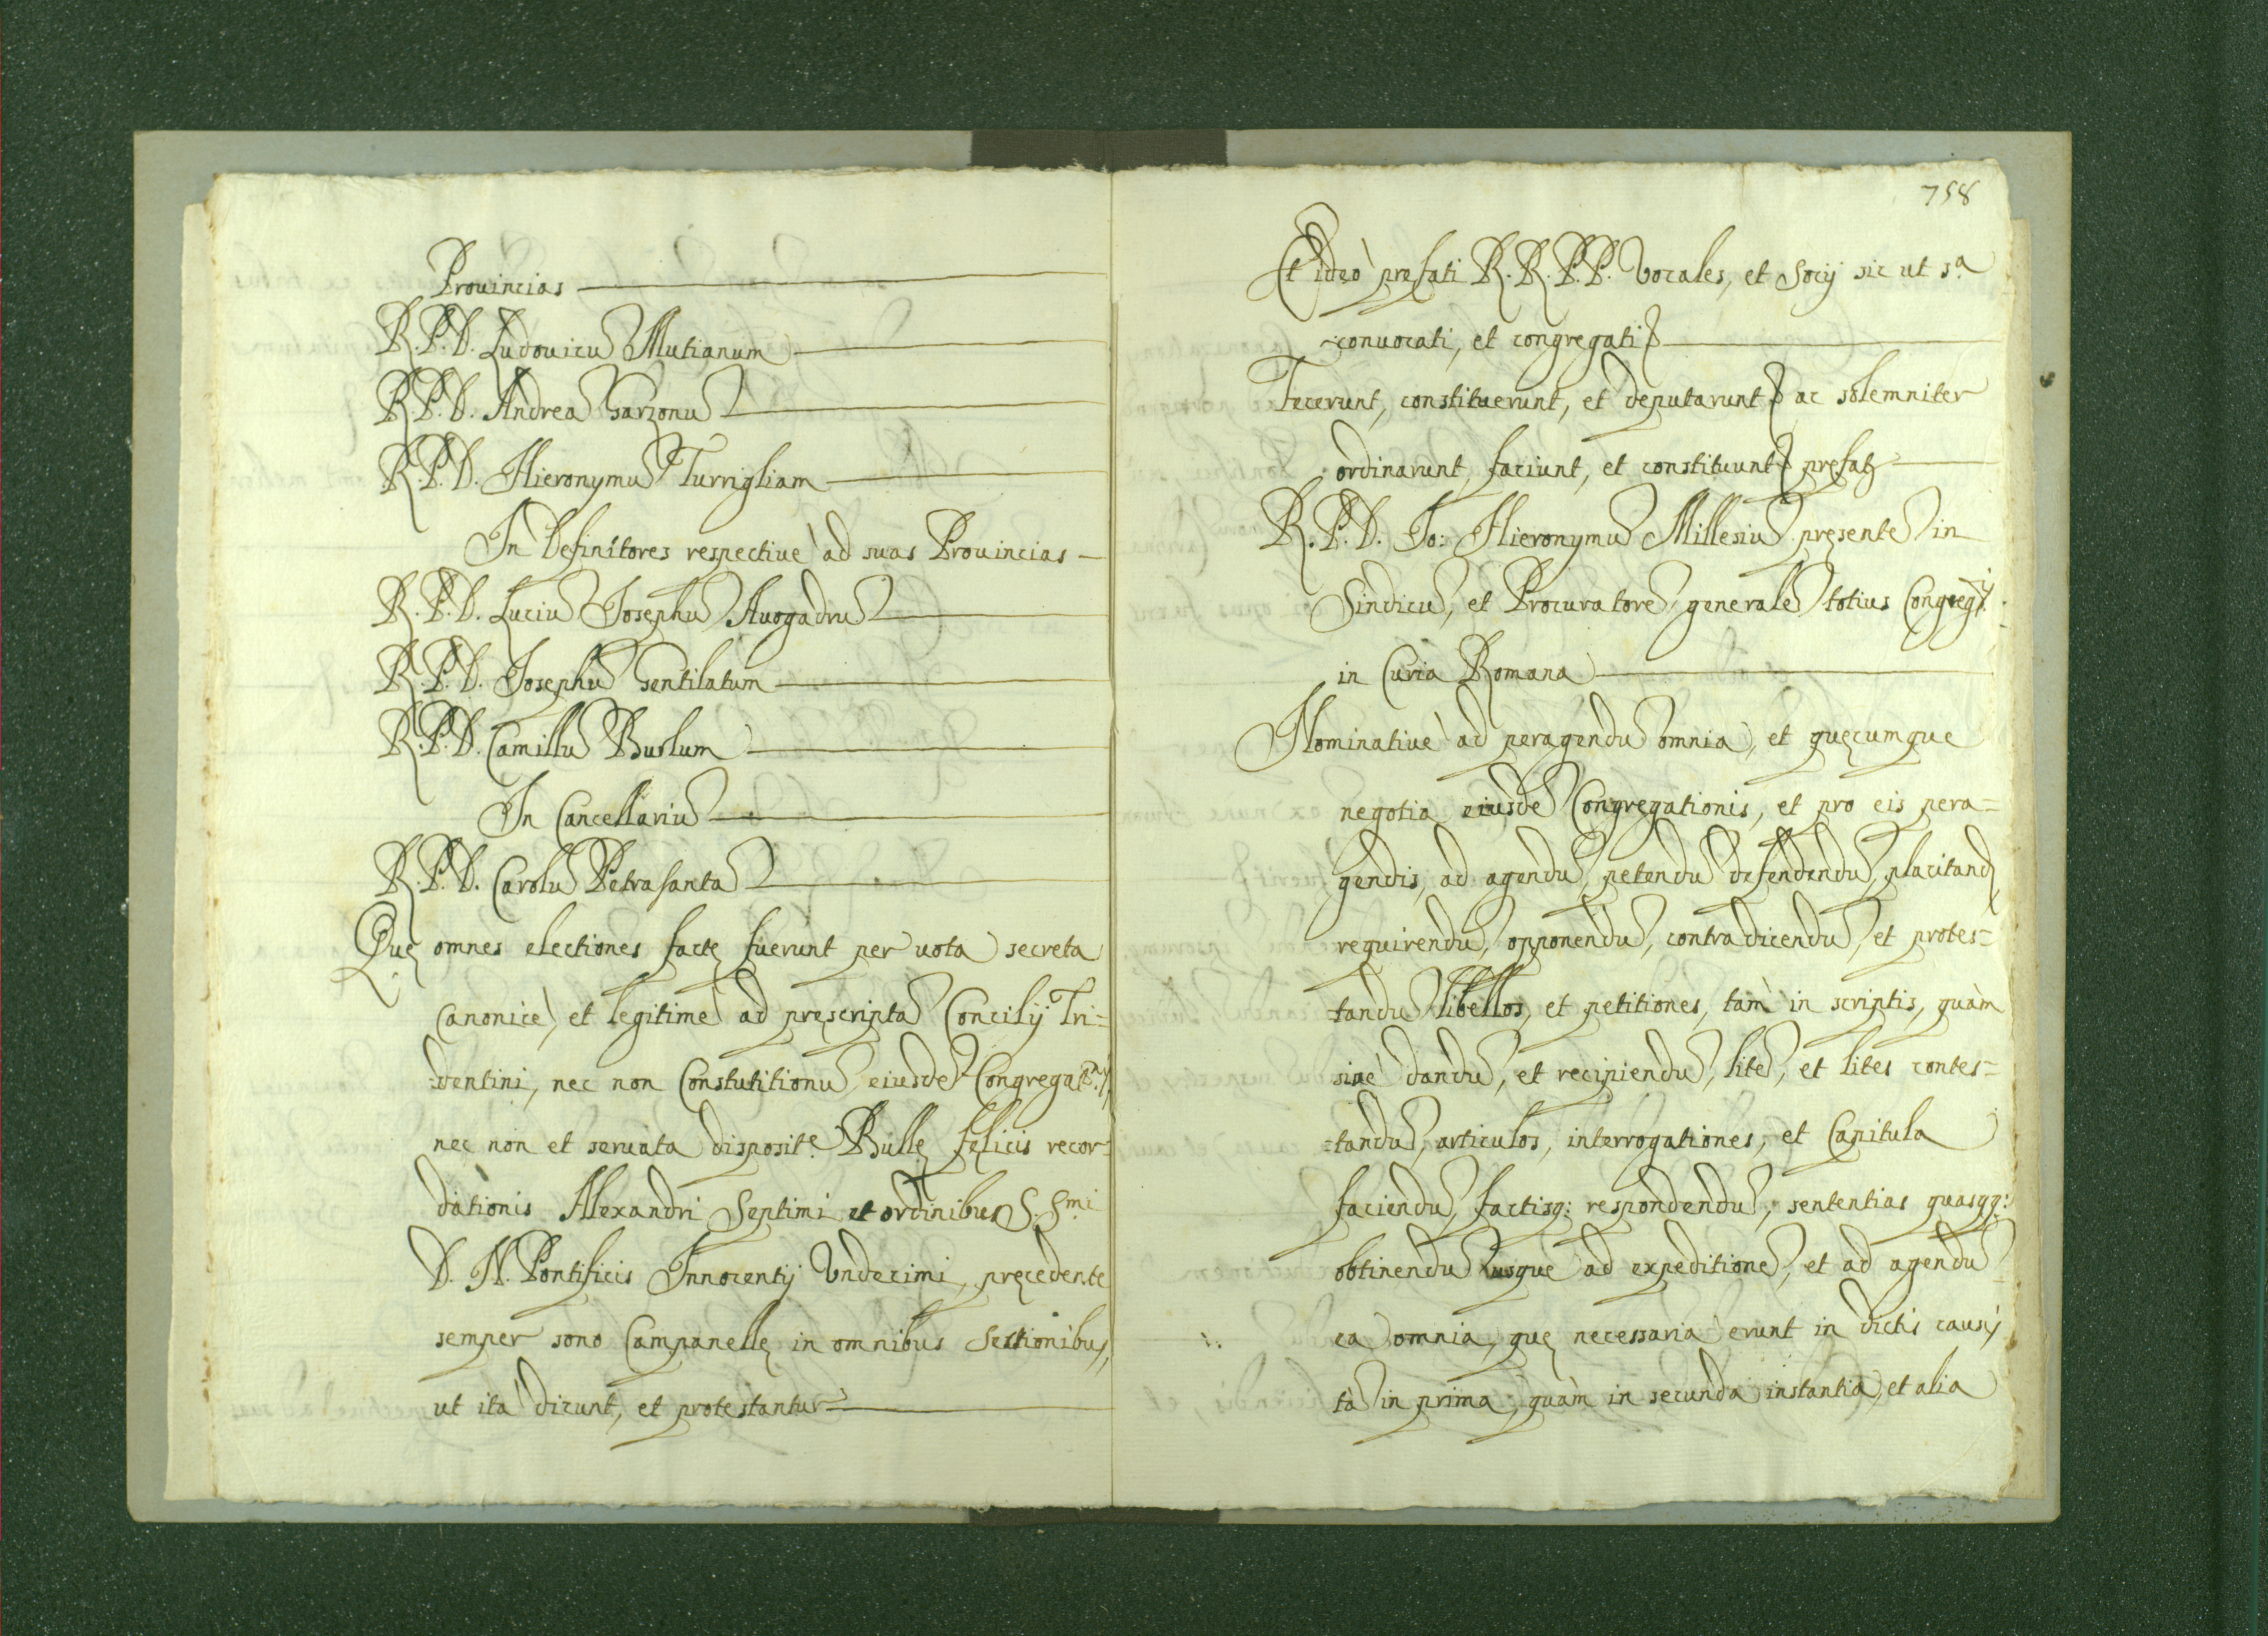 Prouincias
R. P. D. Ludouicu Mutianum
R. P. D. Andrea Garzonu
R. P. D. Hieronymu Turrigliam
In Definitores respectiuè ad suas Prouincias
R. P. D. Luciu Josephu Auogadru
R. P. D. Josephu Gentilatum
R. P. D. Camillu Buslum
In Cancellariu
R. P. D. Carolu Petrasanta
Quę omnes electiones factę fuerunt per uota secreta
canonicè, et legitimè ad pręscripta Concilij Tri=
=dentini, nec non Constutitionu eiusde Congregat.nis
nec non et seruata disposit.e Bullę fęlicis recor=
dationis Alexandri Septimi et ordinibus S. S.mi
D. N. Pontificis Innocentij Undecimi, pręcedente
semper sono Campanellę in omnibus Sessionibus,
ut ita dicunt, et protestantur
758
Et ideò prefati R. R. P. P. Vocales, et Socij sic ut s.a
conuocati, et congregati
Fecerunt, constituerunt, et deputarunt ac solemniter
ordinarunt, faciunt, et constituunt prefat
R. P. D. Jo: Hieronymu Millesiu pręsente in
Sindicu, et Procuratore generale totius Congreg.is
in Curia Romana
Nominatiuè ad peragendu omnia, et quęcumque
negotia eiusde Congregationis, et pro eis pera=
gendis, ad agendu, petendu defendendu, placitand
requirendu, opponendu, contradicendu, et protes=
tandu libellos, et petitiones, tàm in scriptis, quàm
sinè dandu, et recipiendu, lite, et lites contes=
=tandu, articulos, interrogationes, et Capitula
faciendu, factisq: respondendu, sententias quasqq:
obtinendu usque ad expeditione, et ad agendu
ea omnia, quę necessaria erunt in dictis causis
tà in prima, quàm in secunda instantia, et alia